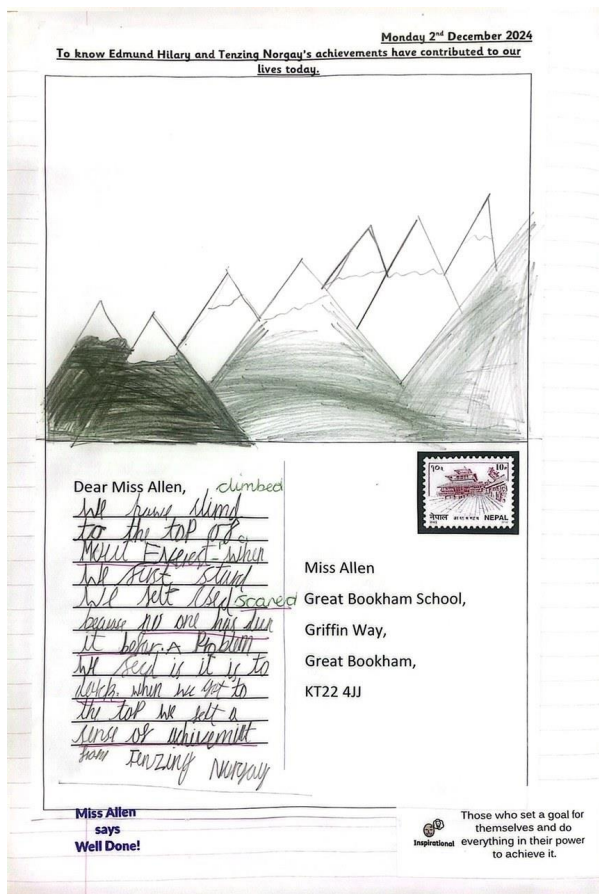 Monday 2nd December 2024
To know Edmund Hilary and Tenzing Norgay's achievements have contributed to our
lives today.
Dear Miss Allen,
climbed
We have climd
to the top of
Mout Everest. when
we fust stard
We felt scared
because no one has dun
it befor. A Problum
We is it is to
when we got to
the top we felt a
sense of achivemint
from Tenzing Norgay
१०रु 10R
नेपाल NEPAL
Miss Allen
Great Bookham School,
Griffin Way,
Great Bookham,
KT22 4JJ
Miss Allen
says
Well Done!
Inspirational
Those who set a goal for
themselves and do
everything in their power
to achieve it.